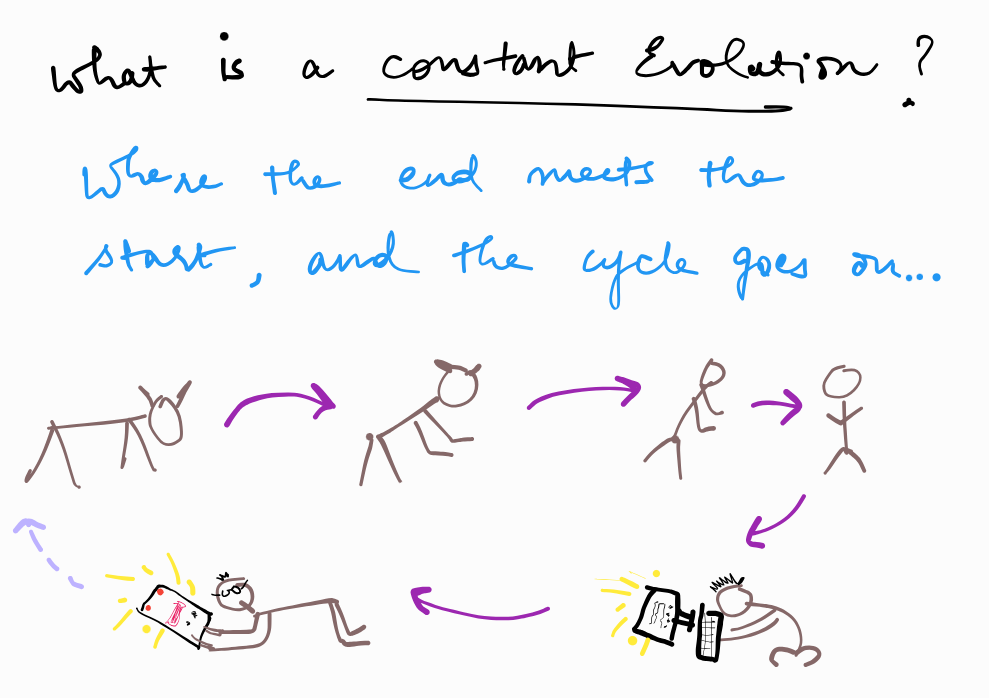 What is a constant Evolution?
Where the end meets the
start, and the cycle goes on...